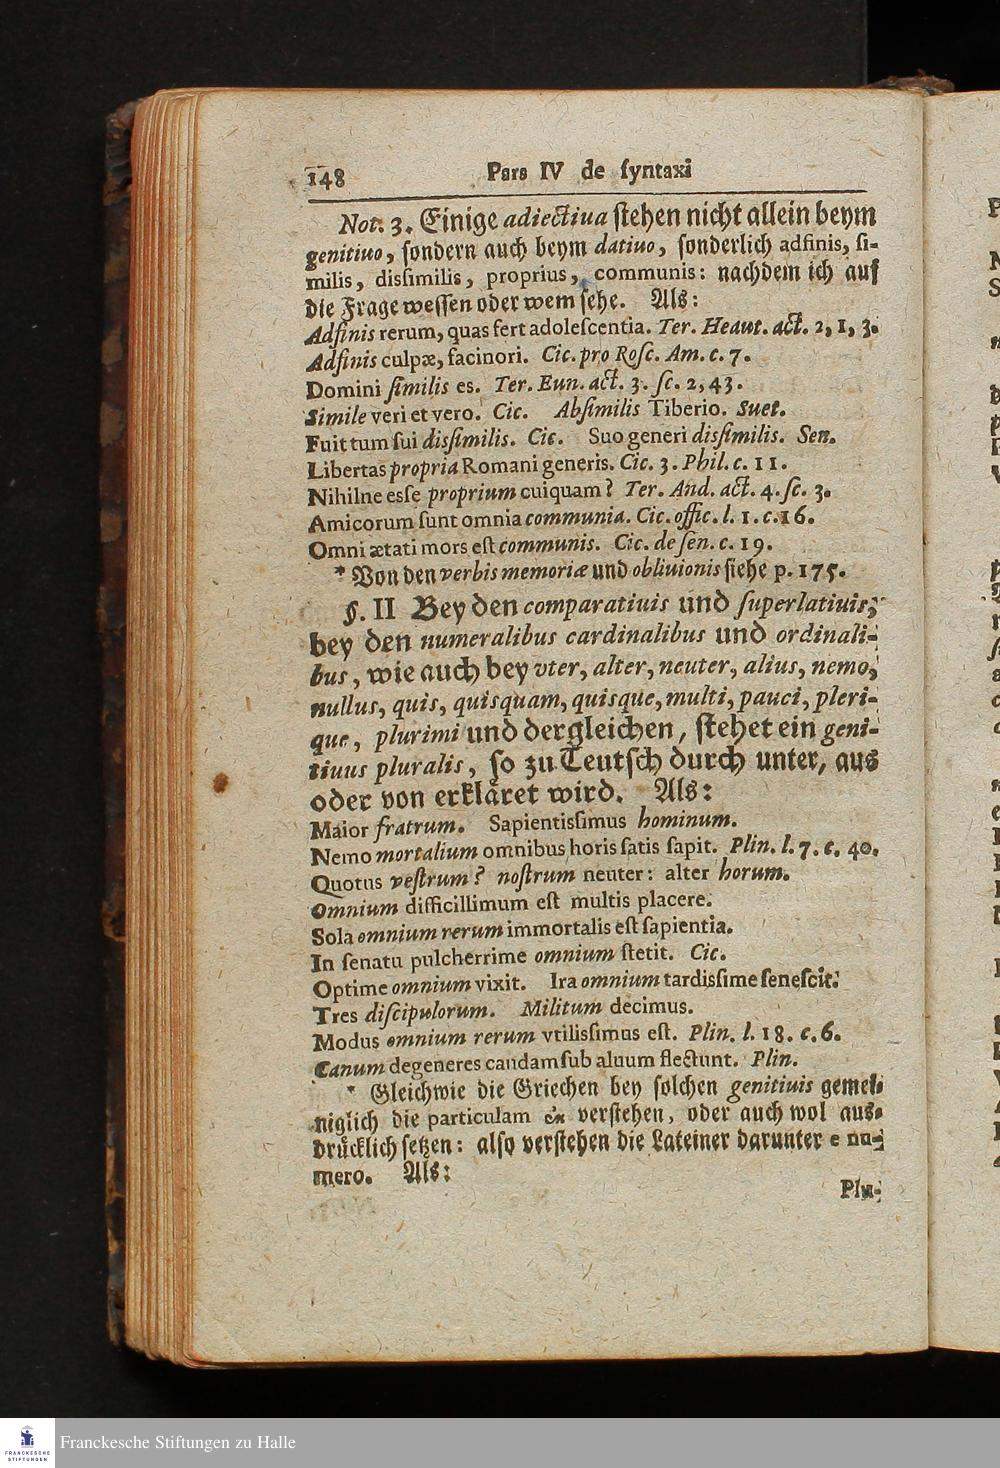 148 Pars IV de ſyntaxi
Not. 3. Einige adiectiua ſtehen nicht allein beym
genitiuo, ſondern auch beym datiuo, ſonderlich adfinis, ſi-
milis, disſimilis, proprius, communis: nachdem ich auf
die Frage weſſen oder wem ſehe. Als:
Adfinis rerum, quas fert adoleſcentia. Ter. Heaut. act. 2, 1, 3.
Adfinis culpæ, facinori. Cic. pro Roſc. Am. c. 7.
Domini ſimilis es. Ter. Eun. act. 3. ſc. 2, 43.
Simile veri et vero. Cic. Abſimilis Tiberio. Suet.
Fuit tum ſui disſimilis. Cic. Suo generi disſimilis. Sen.
Libertas propria Romani generis. Cic. 3. Phil. c. 11.
Nihilne esſe proprium cuiquam? Ter. And. act. 4. ſc. 3.
Amicorum ſunt omnia communia. Cic. offic. l. 1. c. 16.
Omni ætati mors eſt communis. Cic. de ſen. c. 19.
* Von den verbis memoriæ und obliuionis ſiehe p. 175.
§. II Bey den comparatiuis und ſuperlatiuis,
bey den numeralibus cardinalibus und ordinali-
bus, wie auch bey vter, alter, neuter, alius, nemo,
nullus, quis, quisquam, quisque, multi, pauci, pleri-
que, plurimi und dergleichen, ſtehet ein geni-
tiuus pluralis, ſo zu Teutſch durch unter, aus
oder von erklåret wird. Als:
Maior fratrum. Sapientisſimus hominum.
Nemo mortalium omnibus horis ſatis ſapit. Plin. l. 7. c. 40.
Quotus veſtrum? noſtrum neuter: alter horum.
Omnium difficillimum eſt multis placere.
Sola omnium rerum immortalis eſt ſapientia.
In ſenatu pulcherrime omnium ſtetit. Cic.
Optime omnium vixit. Ira omnium tardisſime ſeneſcit.
Tres diſcipulorum. Militum decimus.
Modus omnium rerum vtilisſimus eſt. Plin. l. 18. c. 6.
Canum degeneres caudam ſub aluum flectunt. Plin.
* Gleichwie die Griechen bey ſolchen genitiuis gemei-
niglich die particulam ἐκ verſtehen, oder auch wol aus-
drůcklich ſetzen: alſo verſtehen die Lateiner darunter e nu-
mero. Als:
Plu-
FRANCKESCHE
STIFTUNGEN
Franckesche Stiftungen zu Halle